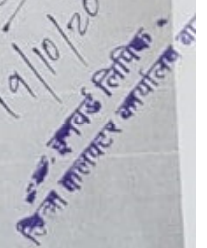 19/10/20
इनवर्ड लिपिक
जिला कलेक्टर कार्यालय